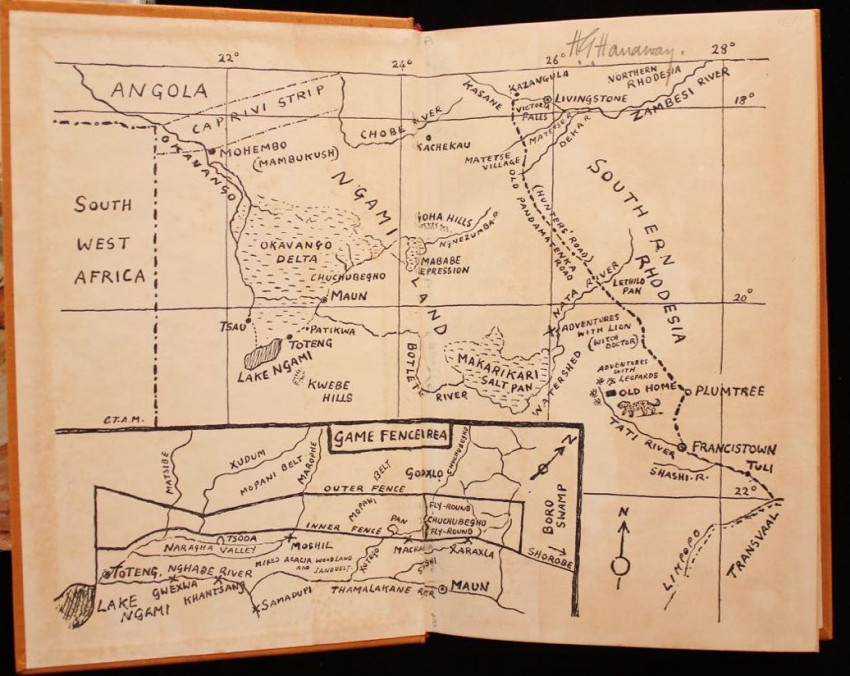 H G Hanaway.
22°
24°
26°
28°
ANGOLA
CAPRIVI STRIP
CHOBE RIVER
KASANE
KAZANGULA
VICTORIA FALLS
LIVINGSTONE
NORTHERN
RHODESIA
ZAMBESI RIVER
18°
OKAVANGO
MOHEMBO
(MAMBUKUSH)
KACHEKAU
MATETSE R.
DEKAR.
MATETSE
VILLAGE
SOUTH
WEST
AFRICA
N'GAMI LAND
SOUTHERN RHODESIA
OLD PANDAMATENKA ROAD
(HUNTERS' ROAD)
OKAVANGO
DELTA
GOHA HILLS
NGNEZUMBA.R.
MABABE
DEPRESSION
CHUCHUBEGHO
MAUN
NATA RIVER
LETHILO
PAN
20°
TSAU
PATIKWA
TOTENG
LAKE NGAMI
KWEBE
HILLS
BOTLETLE
RIVER
MAKARIKARI
SALT PAN
WATERSHED
ADVENTURES
WITH LION
(WITCH
DOCTOR)
ADVENTURES
WITH
LEOPARDS
OLD HOME
PLUMTREE
TATI RIVER
FRANCISTOWN
TULI
SHASHI.R.
22°
C.T.A.M.
GAME FENCE AREA
MATSIBE
XUDUM
MOPANI BELT
MAROPHE
MOPANI
BELT
GODXLO
CHUCHUBEGHO
N
OUTER FENCE
FLY-ROUND
CHUCHUBEGHO
FLY-ROUND
BORO
SWAMP
INNER FENCE
PAN
TSODA
NARAGHA VALLEY
MOSHIL
XARAXLA
SHOROBE
MIXED ACACIA WOODLAND
AND SANDVELT.
TOTENG.
NGHABE RIVER
GWEXWA
KHANTSANG
SAMADUPI
THAMALAKANE RIVER
MAUN
LAKE
NGAMI
N
LIMPOPO
TRANSVAAL